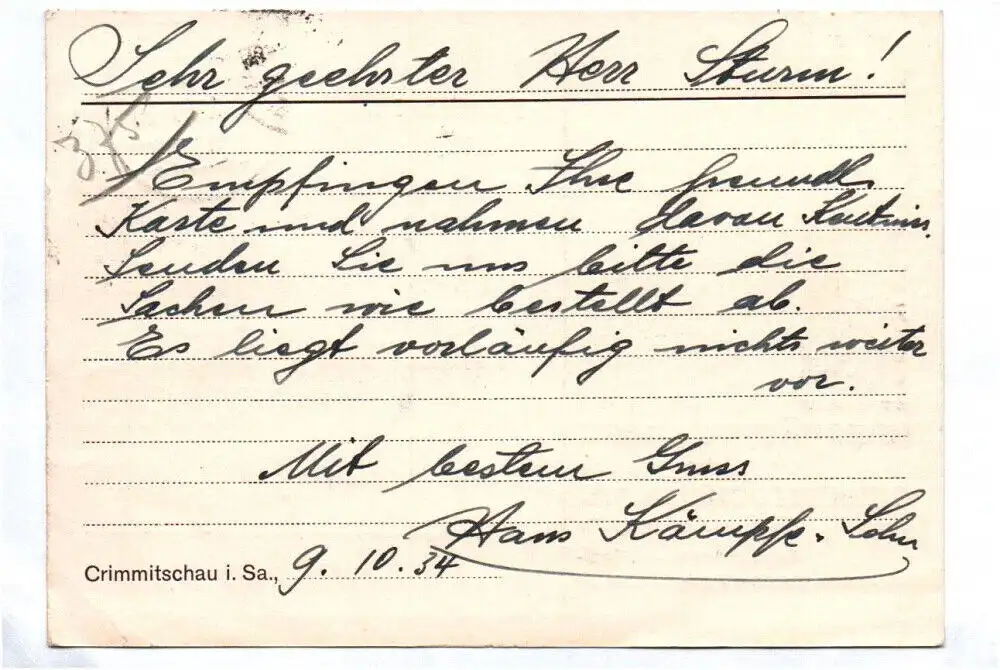 Sehr geehrter Herr Sturm!
Empfingen Ihre freundl.
Karte und nahmen davon Kentniss.
Senden Sie uns bitte die
Sachen wie bestellt ab.
Es liegt vorläufig nichts weiter
vor.
Mit bestem Gruss
Hans Kämpfe. Sohn
Crimmitschau i. Sa., 9. 10. 34